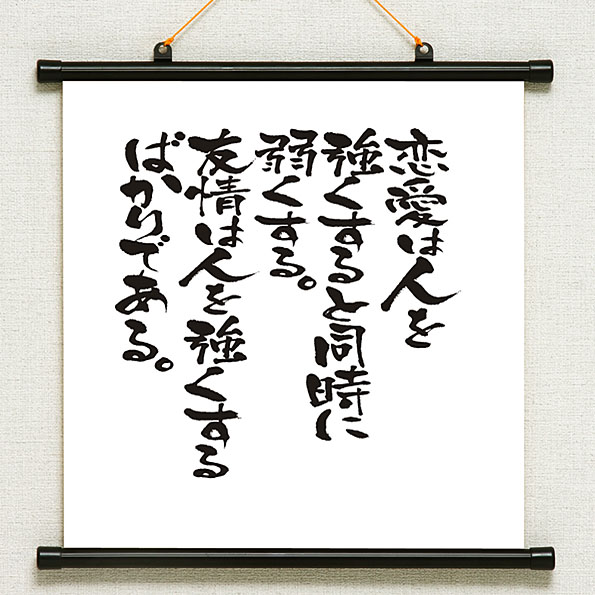 恋愛は人を
強くすると同時に
弱くする。
友情は人を強くする
ばかりである。